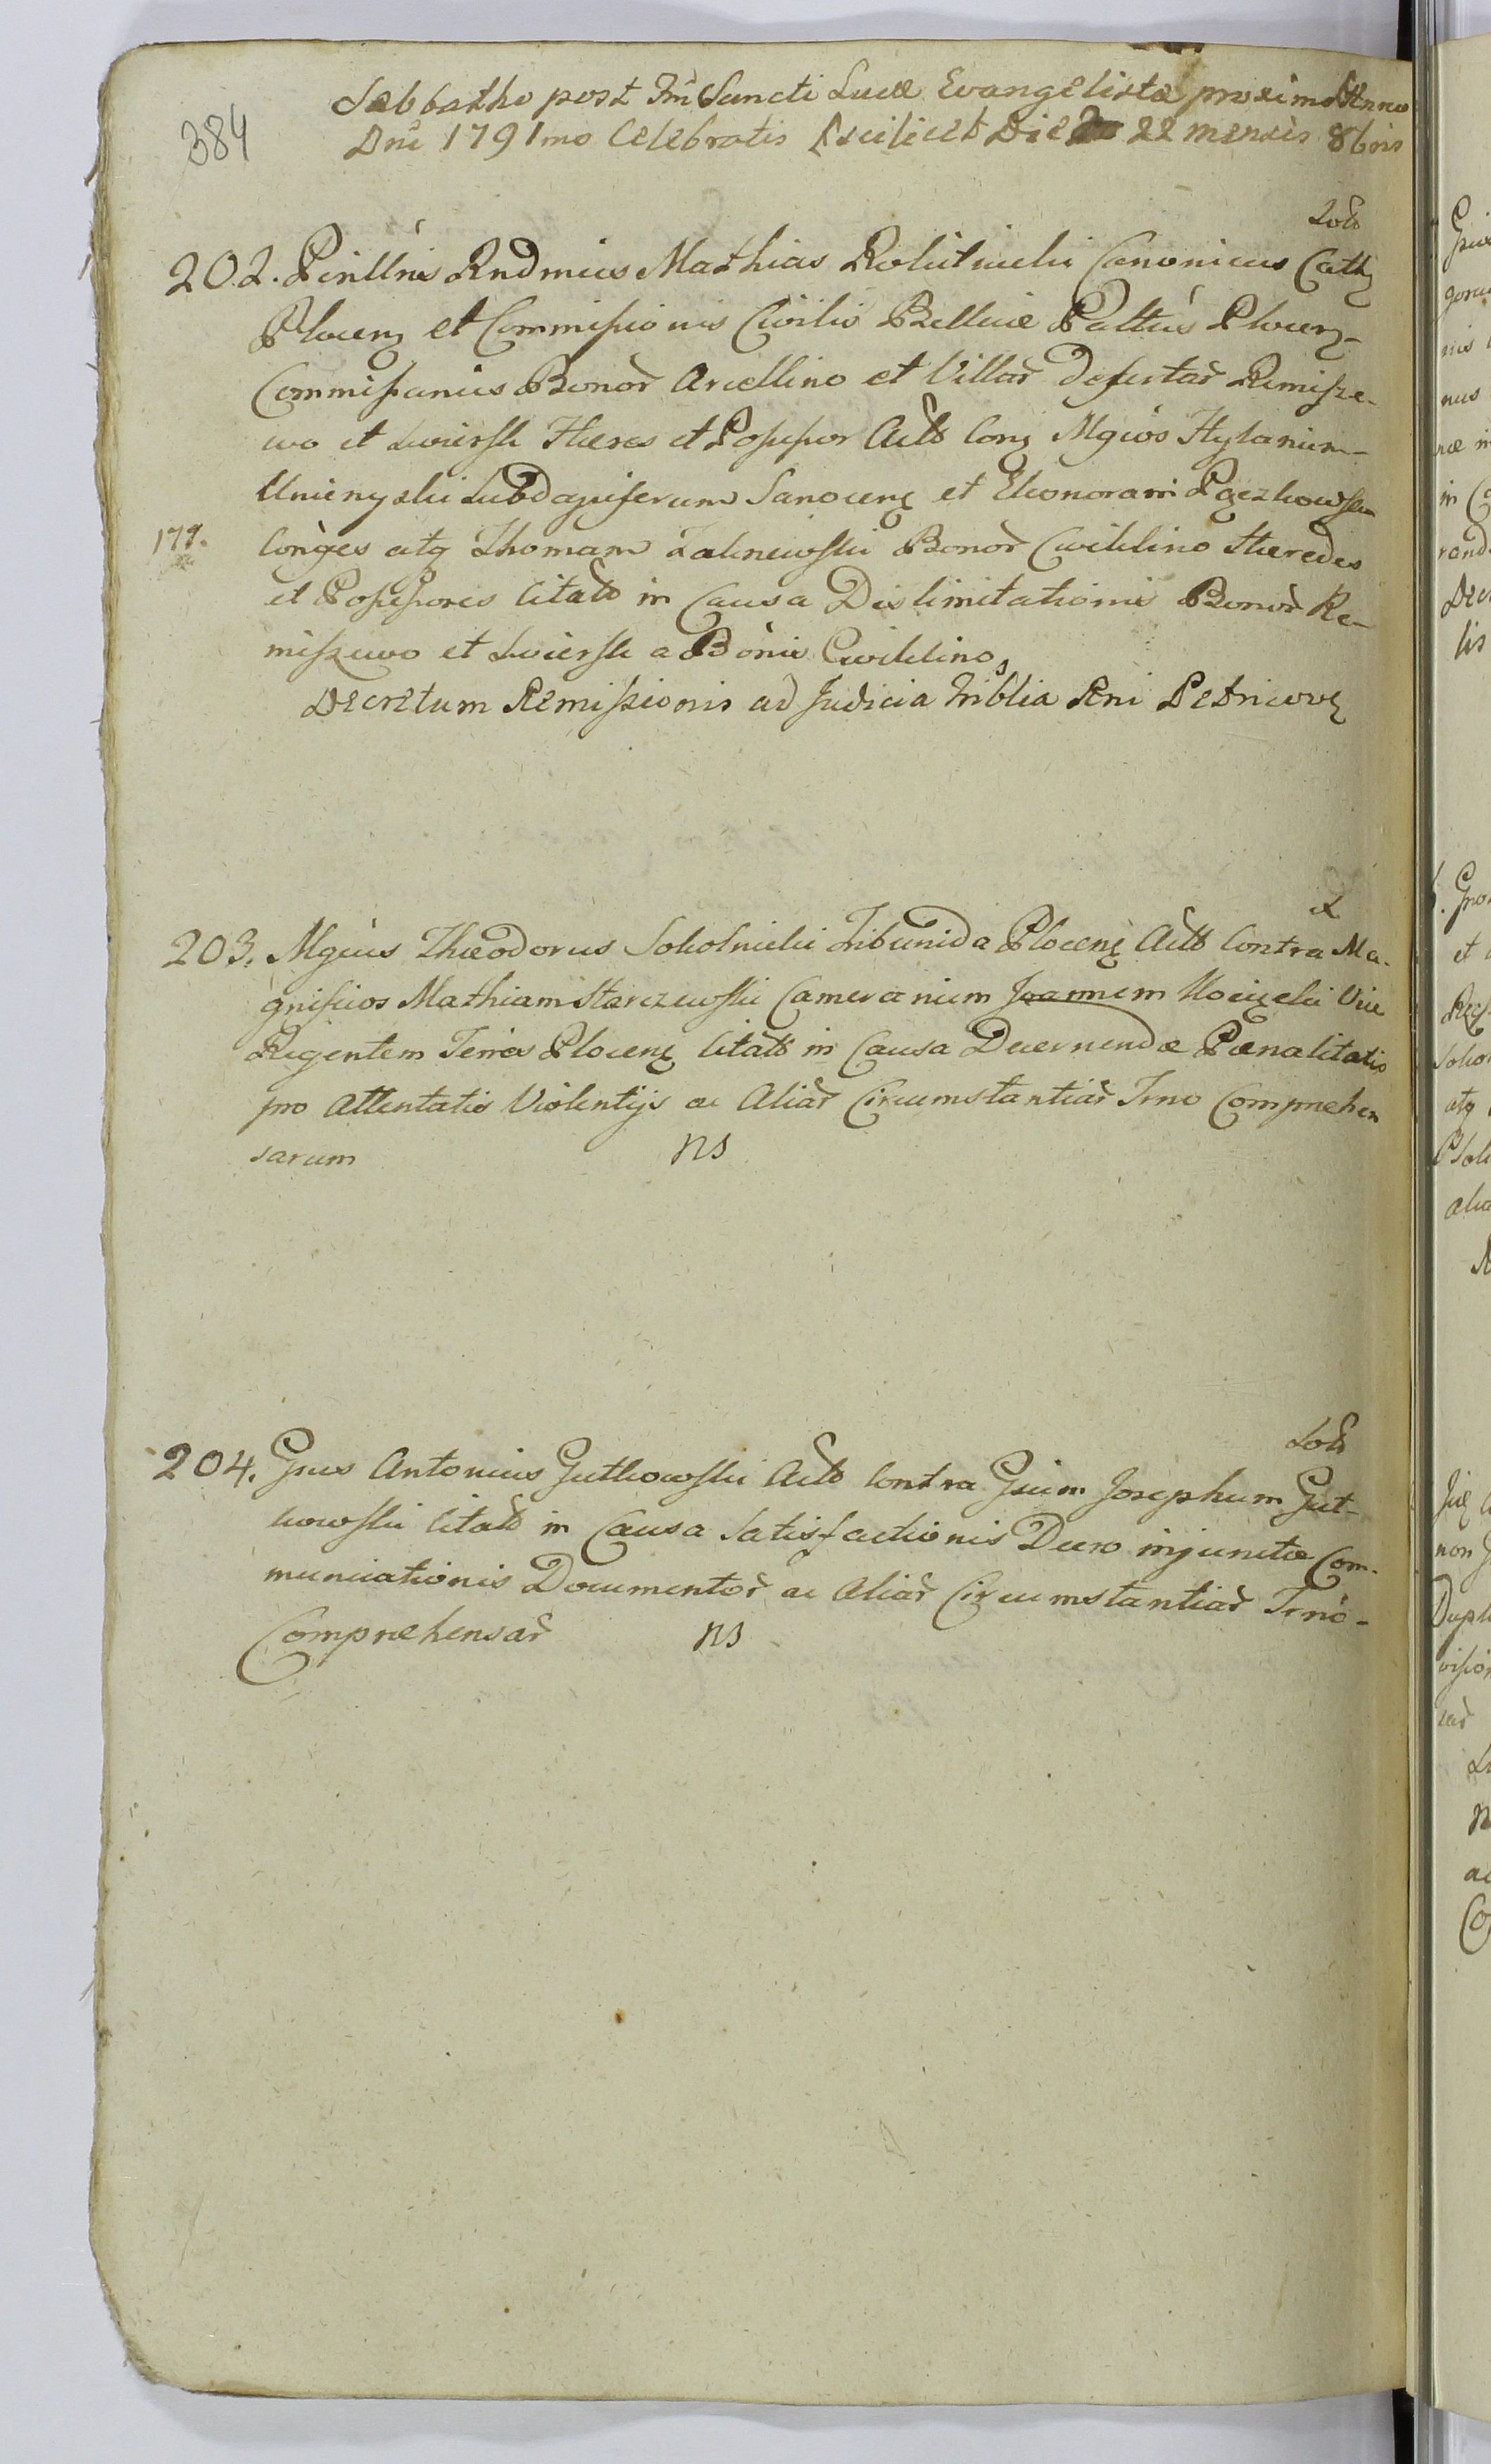 384
Sabbatho post Fm Sancti Lucæ Evangelistæ proximo Anno
Dni 1791mo Celebratis scilicet Die 22 mensis 8bris
202. Perillris Rndmus Mathias Rokitnicki Canonicus Cath
Plocen et Commissionis Civilis Bellicæ Palttus Plocen
Commissarius Bonor Arcellino et Villar Desertar Remisze-
wo et Swiersk Hæres et Possessor Actt Con Mgcos
Unienyski Subdapiferum Sanocen et Eleonoram
179. Conjges atq Thomam Bonor Cwiklino Hæredes
et Possessores Citatt in Causa Dislimitationis Bonor Re-
miszewo et Swiersk a Bonis Cwiklino
Decretum Remissionis ad Judicia Triblia Rni Petricov
203. Mgcus Theodorus Sokolnicki Tribunida Plocen Actt Contra Ma-
gnificos Mathiam Starczewski Camerarium Joannem Vice
Regentem Terræ Plocen Citatt in Causa Decernendæ Pænalitatis
pro Attentatis Violentijs ac Aliar Circumstantiar Trno Comprehen
sarum ns
204. Gsus Antonius Gutkowski Actt Contra Gsum Josephum Gut-
kowski Citatt in Causa Satisfactionis Decro injunctæ Com-
municationis Documentor ac Aliar Circumstantiar Trno
Comprehensar ns